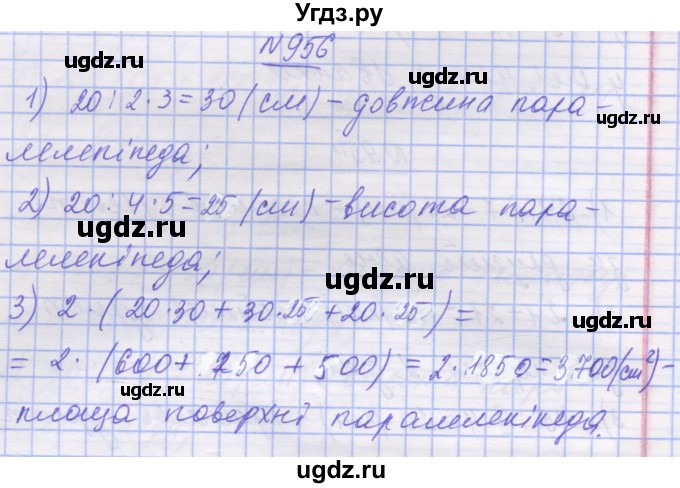 Угдз.ру
№956
ugdz.ru ugdz.ru
1) 20 : 2 · 3 = 30 (см) – довжина пара-
лелепіпеда;
ugdz.ru
2) 20 : 4 · 5 = 25 (см) – висота пара-
ugdz.ru ugdz.ru
лелепіпеда;
ugdz.ru
3) 2 · (20·30 + 30·25 + 20·25) =
ugdz.ru
= 2 · (600 + 750 + 500) = 2·1850 = 3700 (см²) –
ugdz.ru ugdz.ru
площа поверхні паралелепіпеда.
ugdz.ru